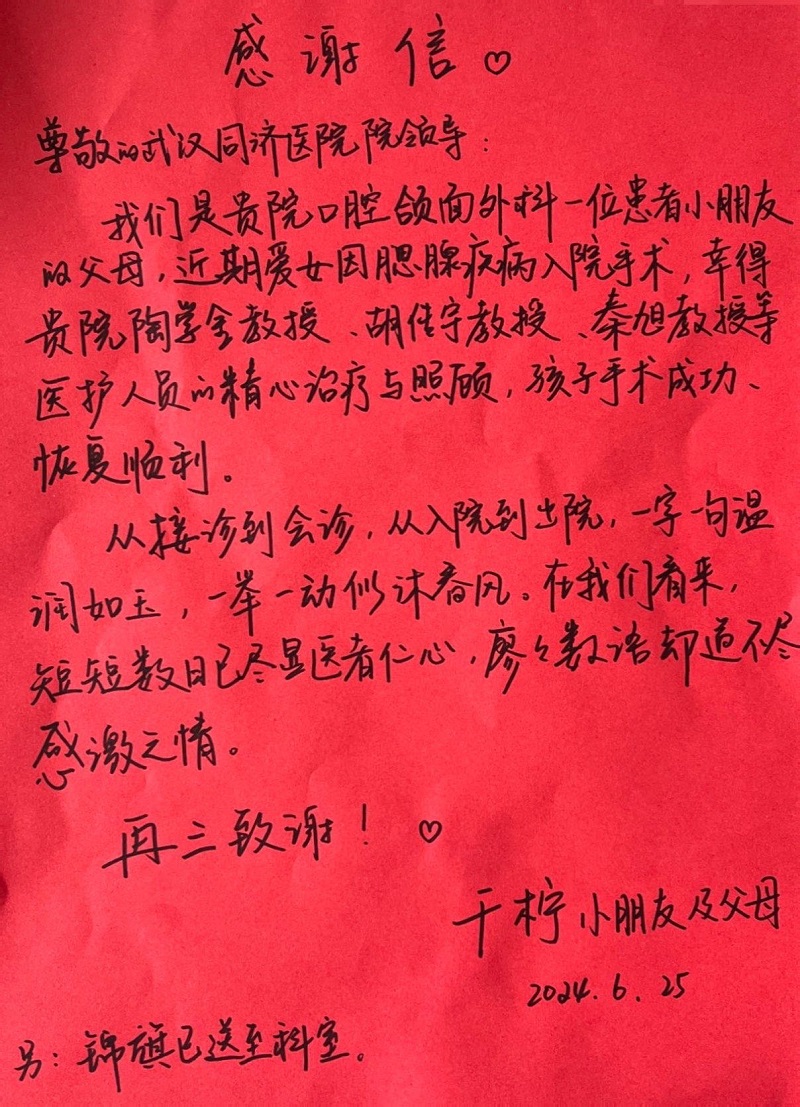 感谢信♡
尊敬的武汉同济医院院领导：
我们是贵院口腔颌面外科一位患者小朋友
的父母，近期爱女因腮腺疾病入院手术，幸得
贵院陶学金教授、胡传宇教授、秦旭教授等
医护人员的精心治疗与照顾，孩子手术成功、
恢复顺利。
从接诊到会诊，从入院到出院，一字一句温
润如玉，一举一动似沐春风。在我们看来，
短短数日已尽显医者仁心，廖々数语却道不尽
感激之情。
再三致谢！♡
干柠小朋友及父母
2024.6.25
另：锦旗已送至科室。